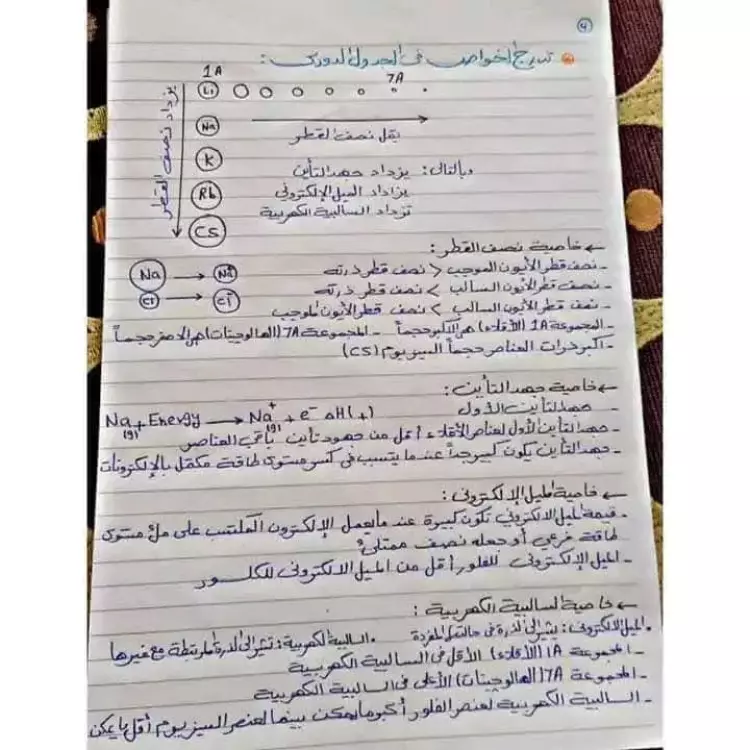 ٤
تدرج الخواص فى الجدول الدورى:
1A 7A
Li
Na
K
Rb
Cs
يزداد نصف القطر
يقل نصف القطر
وبالتالى: يزداد جهد التأين
يزداد الميل الإلكترونى
تزداد السالبية الكهربية
← خاصية نصف القطر:
- نصف قطر الأيون الموجب < نصف قطر ذرته
Na → Na+
- نصف قطر الأيون السالب > نصف قطر ذرته
Cl → Cl-
- نصف قطر الأيون السالب > نصف قطر الأيون الموجب
- المجموعة 1A (الأقلاء) هى الأكبر حجماً - المجموعة 7A (الهالوجينات) هى الأصغر حجماً
- اكبر ذرات العناصر حجماً السيزيوم (CS)
← خاصية جهد التأين:
- جهد التأين الأول Na(g) + Energy → Na+(g) + e- ΔH(+)
- جهد التأين الأول لعناصر الأقلاء أقل من جهود تأين باقى العناصر
- جهد التأين يكون كبير جداً عندما يتسبب فى كسر مستوى طاقة مكتمل بالإلكترونات
← خاصية الميل الإلكترونى:
- قيمة الميل الالكترونى تكون كبيرة عندما يعمل الإلكترون المكتسب على ملئ مستوى
طاقة فرعي أو جعله نصف ممتلئ
- الميل الإلكترونى للفلور أقل من الميل الالكترونى للكلور
← خاصية السالبية الكهربية:
• الميل الالكترونى: يشير إلى الذرة فى حالتها المفردة • السالبية الكهربية: تشير إلى الذرة المرتبطة مع غيرها
- المجموعة 1A (الأقلاء) الأقل فى السالبية الكهربية
- المجموعة 7A (الهالوجينات) الأعلى فى السالبية الكهربية
- السالبية الكهربية لعنصر الفلور أكبر ما يمكن بينما لعنصر السيزيوم أقل ما يمكن